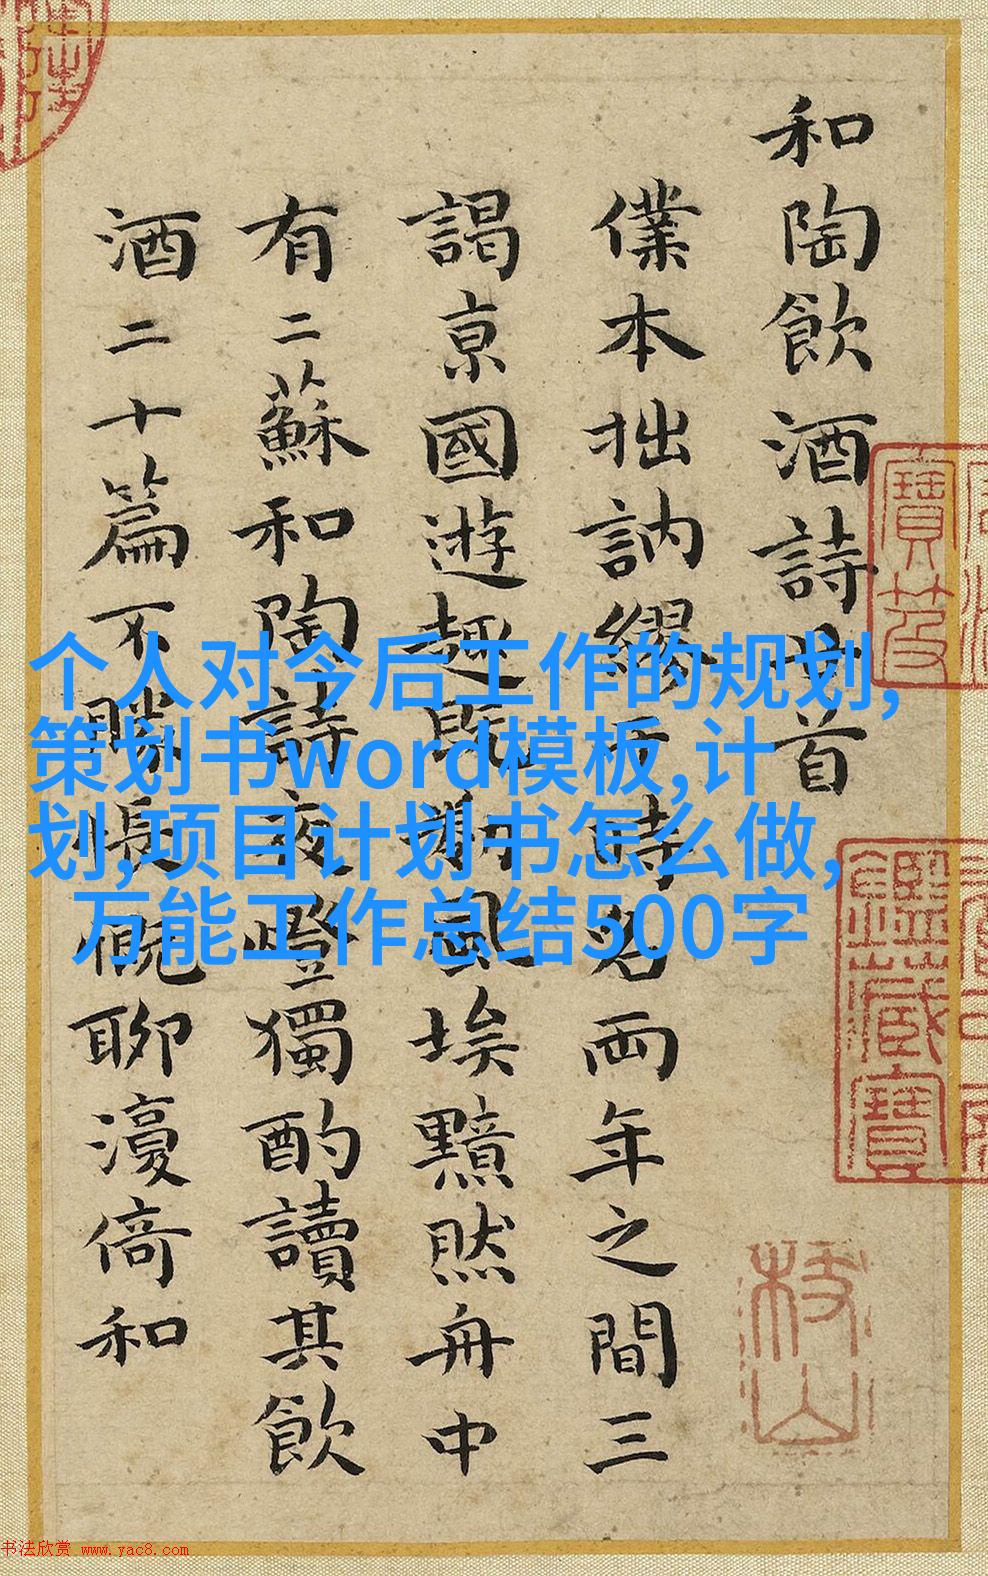 和陶飲酒詩廿首
僕本拙訥繆詩名兩年之間三
謁京國遊趣既風埃黯然舟中
有二蘇和陶詩夜燈獨酌讀其飲
酒二十篇不勝悵慨聊倚和
个人对今后工作的规划,
策划书word模板,计
划,项目计划书怎么做,
万能工作总结500字
寶笈
鑑藏寶
枝山
书法欣赏 www.yac8.com